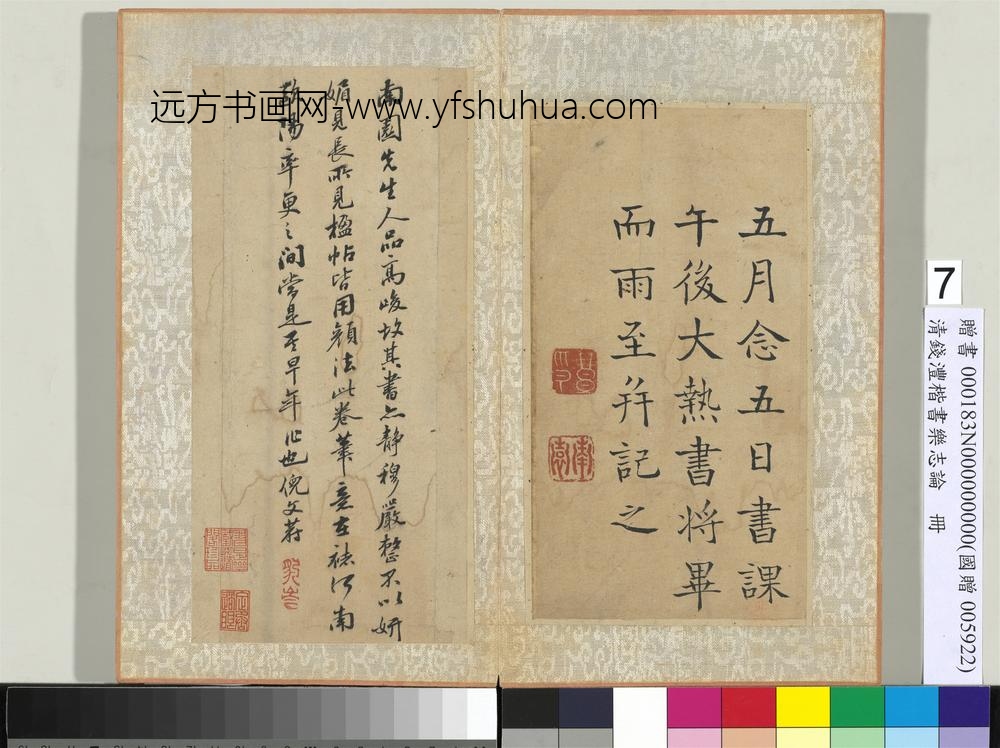 远方书画网-www.yfshuhua.com
五月念五日書課
午後大熱書将畢
而雨至并記之
南園先生人品高峻故其書亦静穆嚴整不以妍
媚見長所見楹帖皆用顔法此卷筆意在褚河南
歐陽率更之間當是其早年作也倪文蔚
7
贈書 000183N000000000(國贈 005922)
清錢灃楷書樂志論 冊